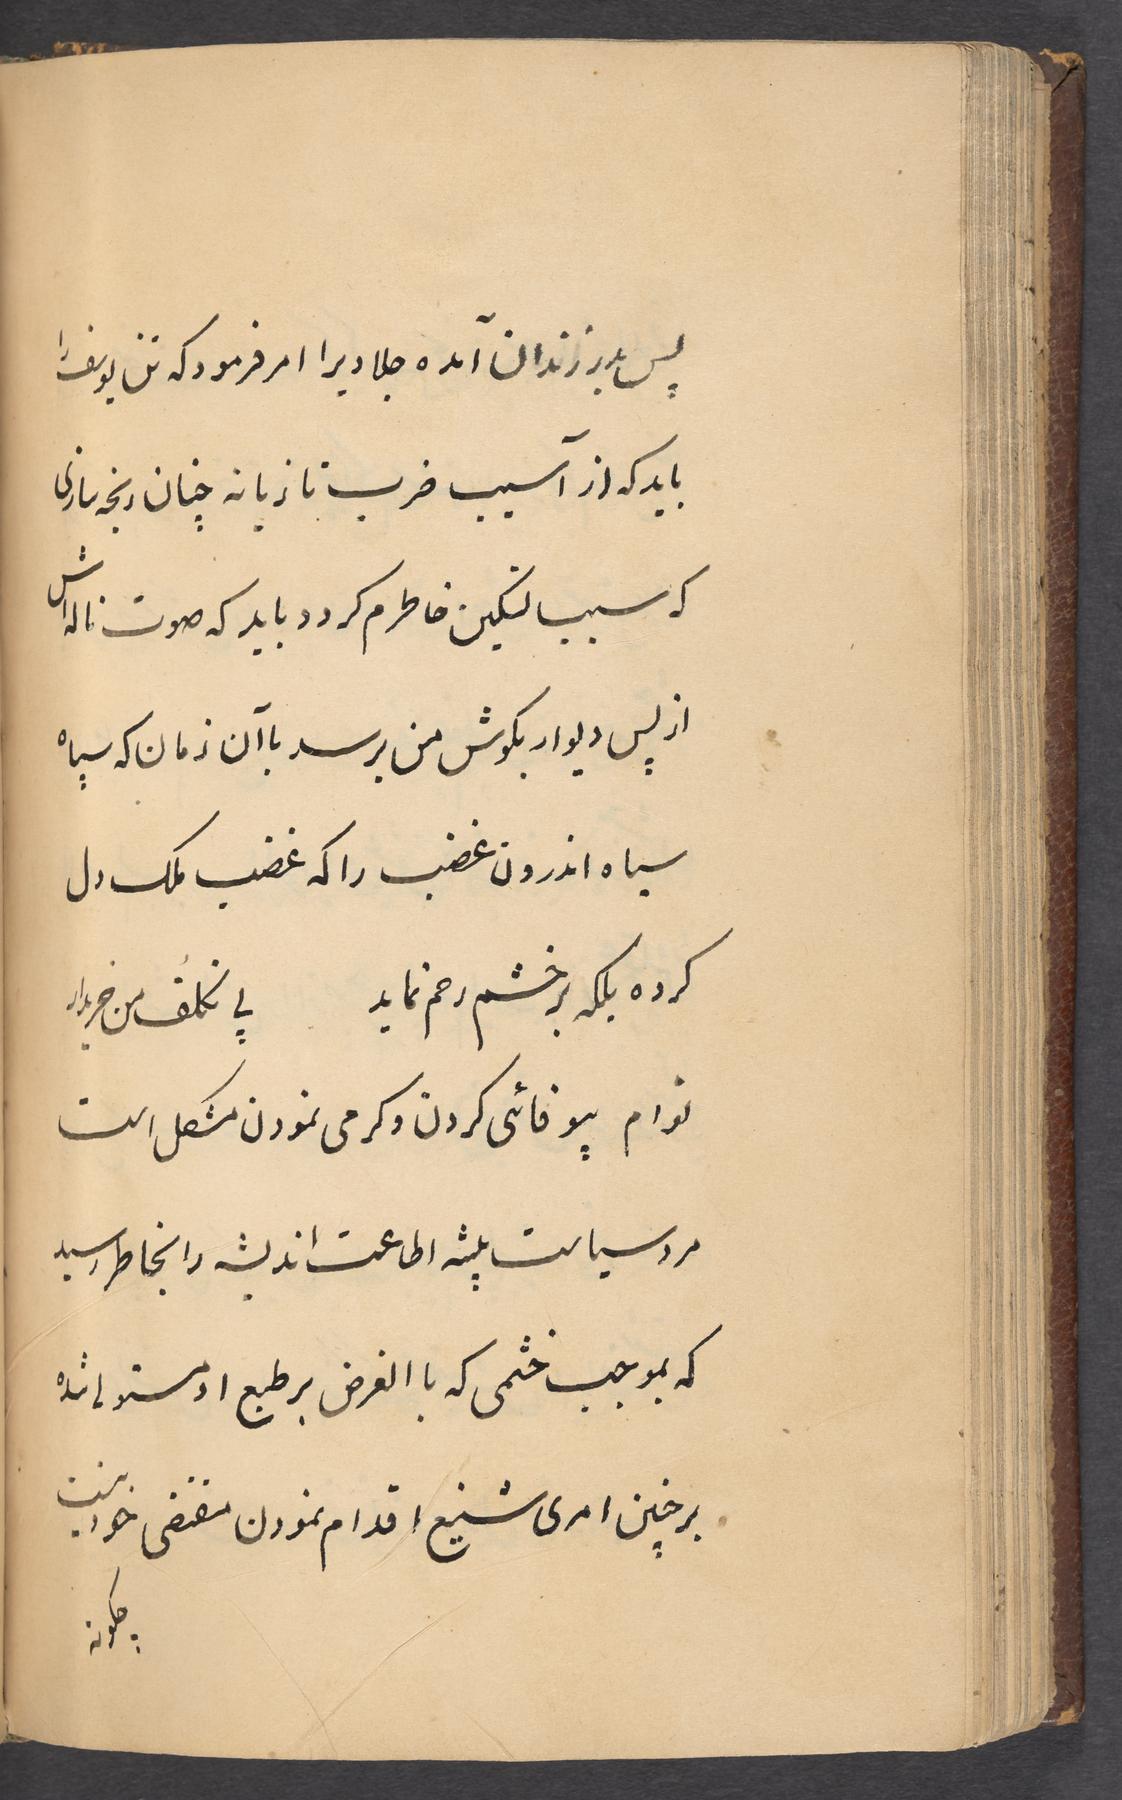 پس بدر زندان آمده جلادیرا امر فرمود که تن یوسف را
باید که از آسیب ضرب تازیانه چنان رنجه سازی
که سبب تسکین خاطرم کردد باید که صوت ناله اش
از پس دیوار بکوش من برسد باآن زمان که سپاه
سیاه اندرون غضب را که غضب ملک دل
کرده بلکه بر خشم رحم نماید پی تکلف من خریدار
توام بیوفائی کردن و کرمی نمودن مشکل است
مرد سیاست پیشه اطاعت اندیشه را بخاطر رسید
که بموجب خشمی که باالفرض بر طبع او مستولی شده
بر چنین امری شنیع اقدام نمودن مقتضی خود نیست
چکونه